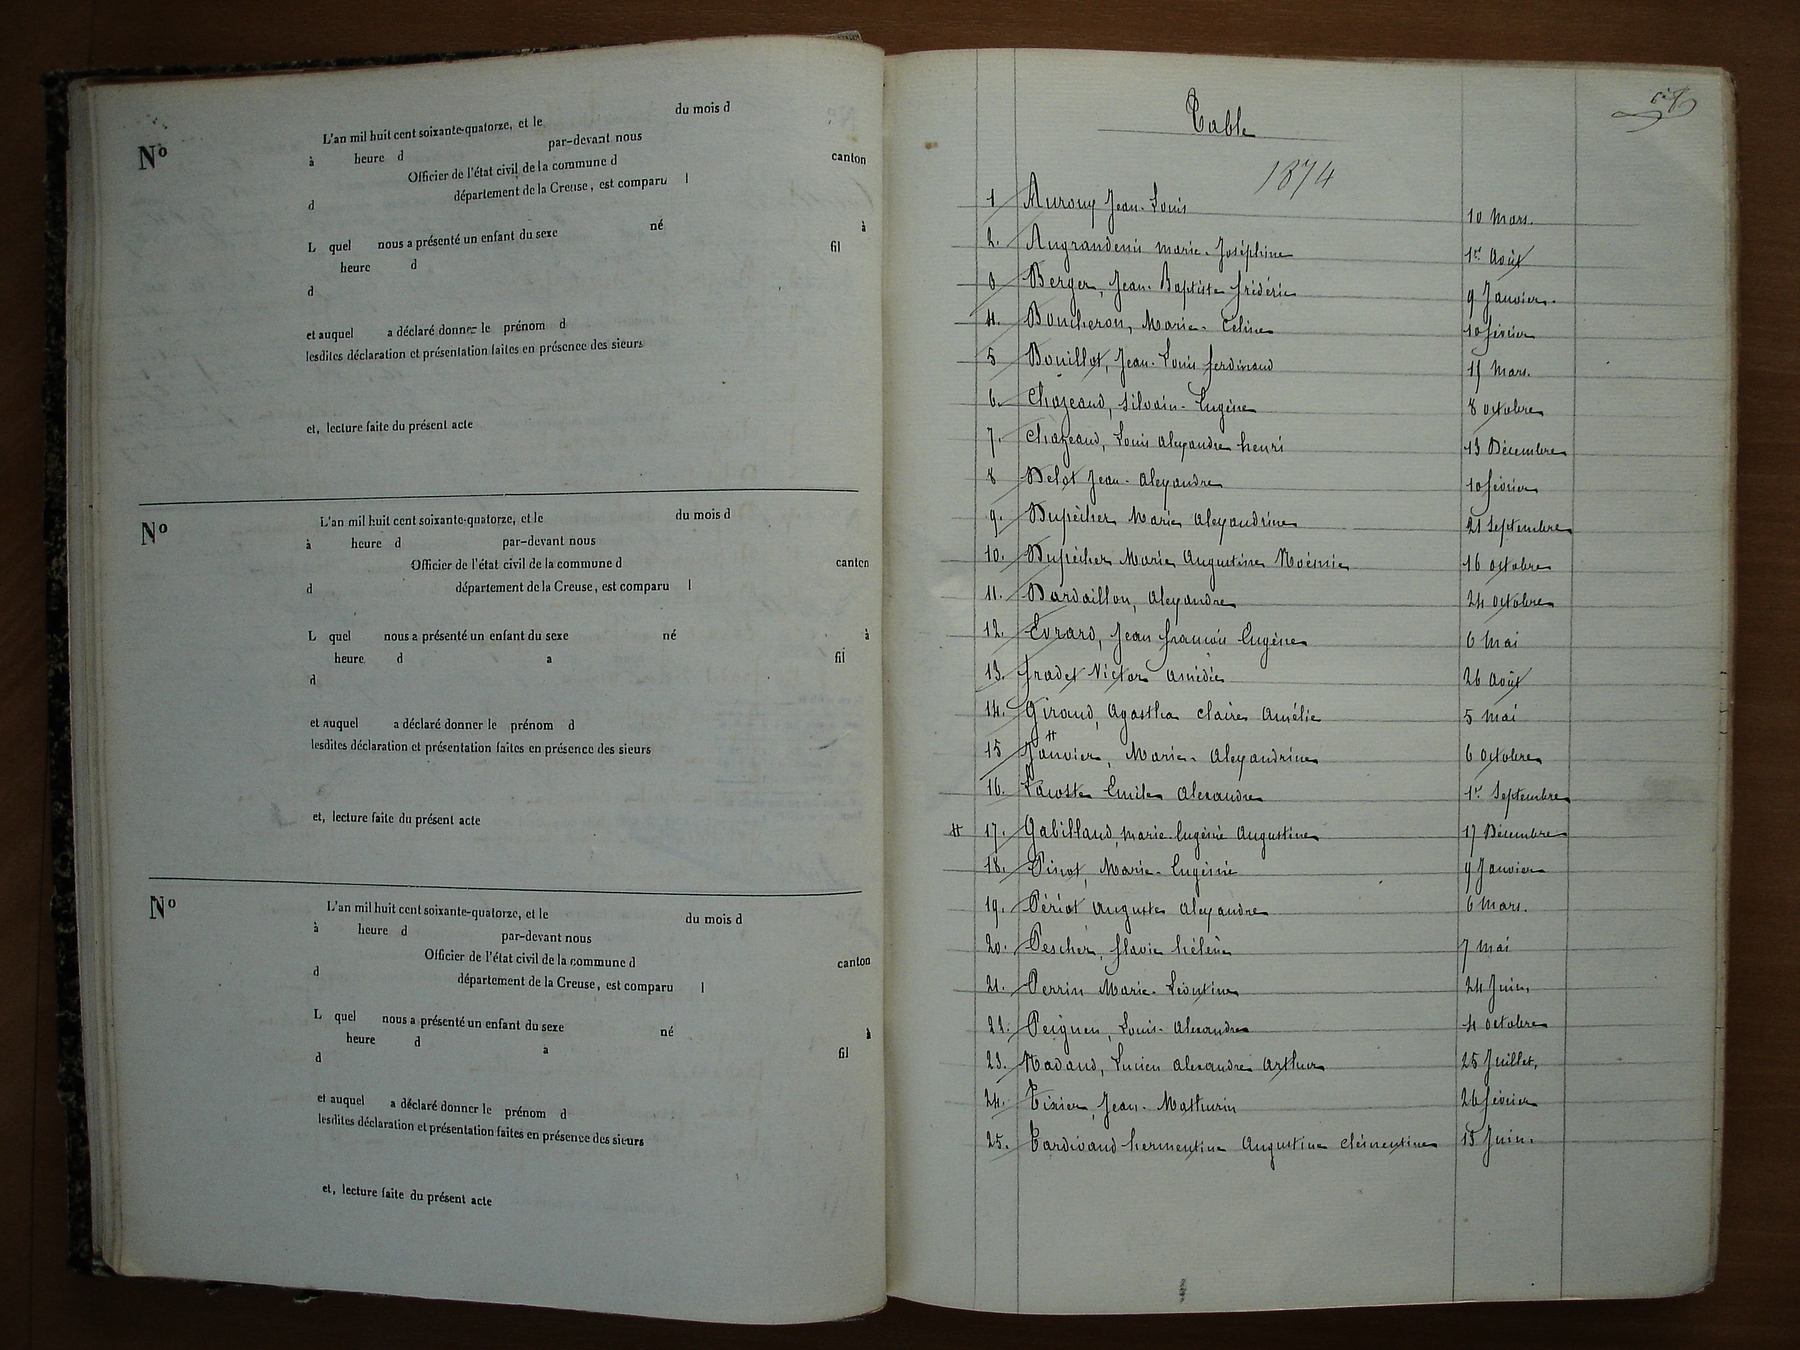 Nº
L'an mil huit cent soixante-quatorze, et le du mois d
à heure d par-devant nous
Officier de l'état civil de la commune d canton
d département de la Creuse, est comparu l
L quel nous a présenté un enfant du sexe né à
heure d fil
d
et auquel a déclaré donner le prénom d
lesdites déclaration et présentation faites en présence des sieurs
et, lecture faite du présent acte
Nº
L'an mil huit cent soixante-quatorze, et le du mois d
à heure d par-devant nous
Officier de l'état civil de la commune d canton
d département de la Creuse, est comparu l
L quel nous a présenté un enfant du sexe né à
heure d a fil
d
et auquel a déclaré donner le prénom d
lesdites déclaration et présentation faites en présence des sieurs
et, lecture faite du présent acte
Nº
L'an mil huit cent soixante-quatorze, et le du mois d
à heure d par-devant nous
Officier de l'état civil de la commune d canton
d département de la Creuse, est comparu l
L quel nous a présenté un enfant du sexe né à
heure d a fil
d
et auquel a déclaré donner le prénom d
lesdites déclaration et présentation faites en présence des sieurs
et, lecture faite du présent acte
Table
1874
1 Jean-Louis 10 Mars.
2. Augrandenis marie-Joséphine 1er Août
3 Berger, Jean-Baptiste frédéric 9 Janvier.
4. Boucheron, Marie-Celine 10 février
5 Bouillot, Jean-Louis ferdinand 11 Mars.
6. Chazeaud, Silvain-Eugène 8 octobre
7. Chazeaud, Louis Alexandre henri 13 Décembre
8 Delot Jean-Alexandre 10 février
9. Dupêcher Marie Alexandrine 21 Septembre
10. Dupêcher Marie Augustine Noémie 16 octobre
11. Dardaillon, Alexandre 24 octobre
12. Evrard, Jean françois Eugène 6 Mai
13. fradet Victor Amédée 26 Août
14. Giraud, Agastha Claire Amélie 5 Mai
15 Janvier, Marie-Alexandrine 6 octobre
16. Lacoste Emile Alexandre 1er Septembre
# 17. Gabillaud, marie-Eugénie Augustine 17 Décembre
18. Pinot, Marie-Eugénie 9 Janvier
19. Périot Auguste Alexandre 6 Mars.
20. Pescher, flavie hélène 7 Mai
21. Perrin Marie-Léontine 24 Juin,
22. Peignen, Louis-Alexandre 4 octobre
23. Nadaud, Lucien Alexandre Arthur 25 Juillet,
24. Tixier, Jean-Mathurin 26 février
25. Tardivaud hermentine Augustine Clémentine 15 Juin.